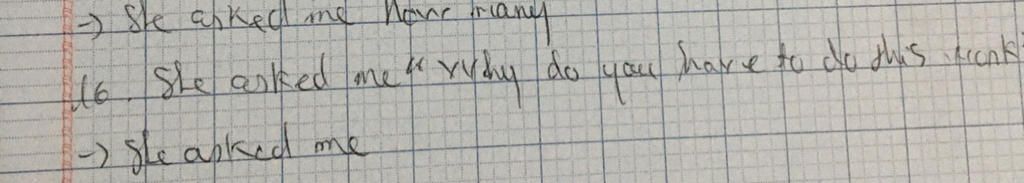 -> She asked me how many
16. She asked me "why do you have to do this work
-> She asked me